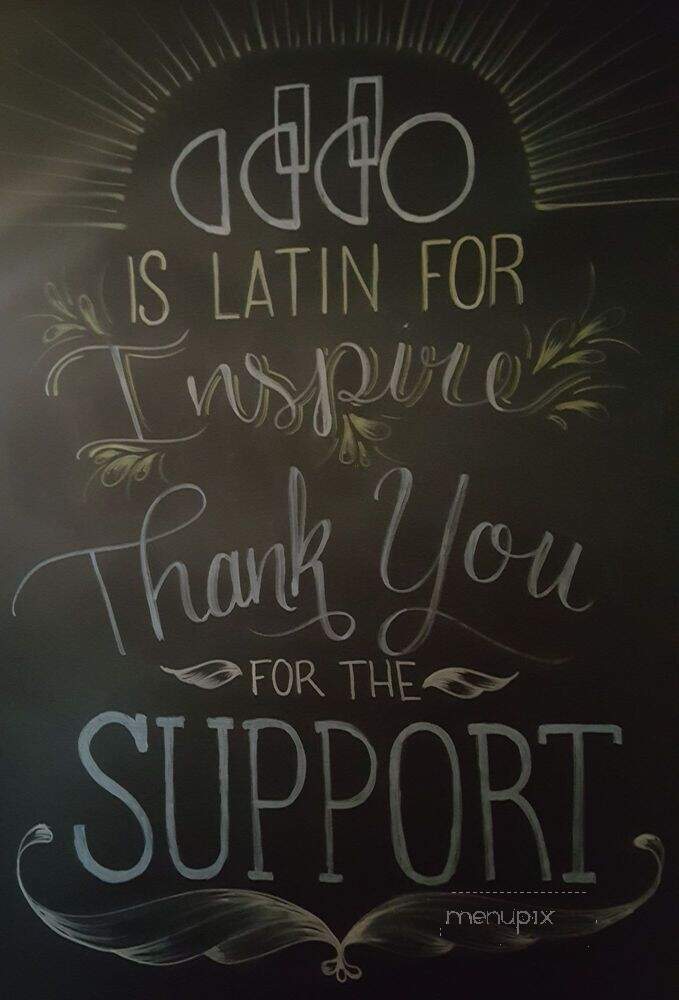 addo
IS LATIN FOR
Inspire
Thank You
FOR THE
SUPPORT
menupix